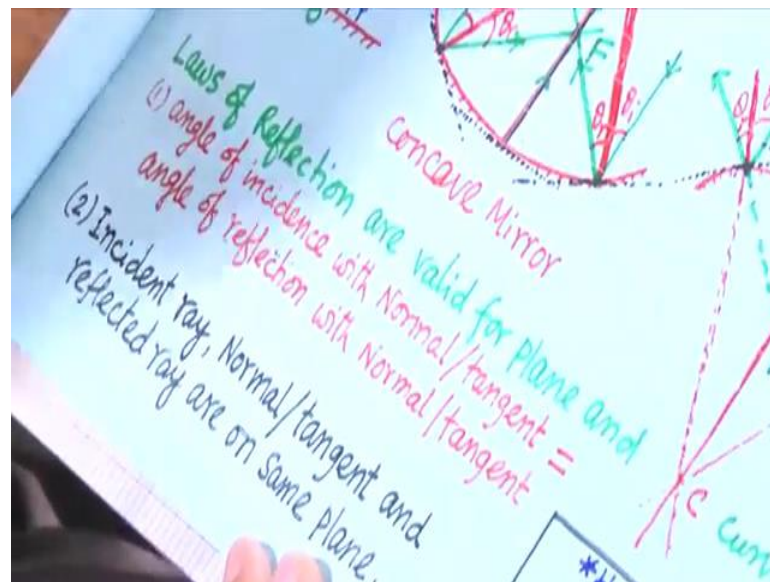 Laws of Reflection are valid for plane and
(1) angle of incidence with Normal/tangent =
angle of reflection with Normal/tangent
(2) Incident ray, Normal/tangent and
reflected ray are on same plane.
Concave Mirror
F
θr
θi
C